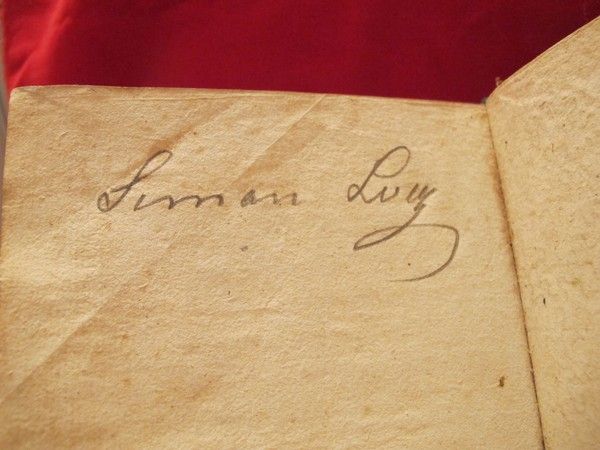 Simon Levy